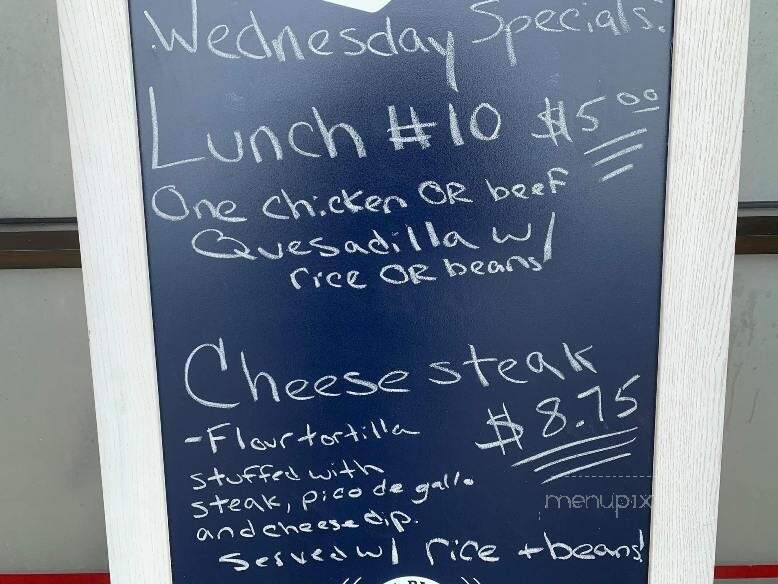 Wednesday Specials!
Lunch #10 $5.00
One chicken OR beef
Quesadilla w/
rice OR beans
Cheese steak
-Flour tortilla $8.75
stuffed with
steak, pico de gallo
and cheese dip.
menupix
Served w/ rice + beans!